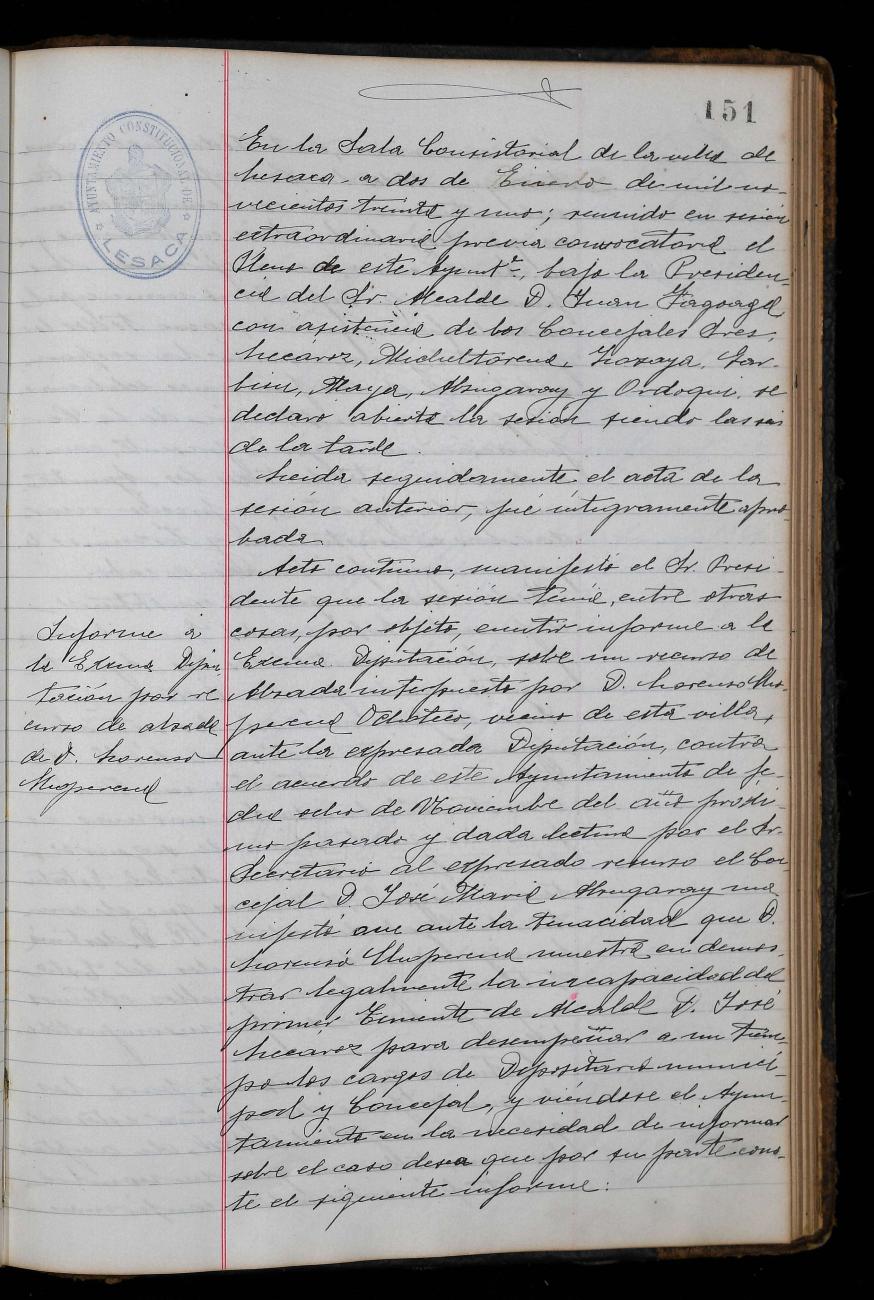 151
AYUNTAMIENTO CONSTITUCIONAL DE
LESACA
En la Sala Consistorial de la villa de
Lesaca a dos de Enero de mil no-
vecientos treinta y uno; reunido en sesión
extraordinaria previa convocatoria el
Pleno de este Ayuntº, bajo la Presiden-
cia del Sr. Alcalde D. Juan Fagoaga
con asistencia de los Concejales Sres.
Lecároz, Micheltorena, Lozaya, Gar-
bisu, Maya, Alzugaray y Ordoqui, se
declaro abierta la sesión siendo las seis
de la tarde.
Leida seguidamente el acta de la
sesión anterior, fué integramente apro-
bada
Acto continuo, manifestó el Sr. Presi-
dente que la sesión tenia, entre otras
cosas, por objeto, emitir informe a la
Excma Diputación, sobre un recurso de
Alzada interpuesto por D. Lorenzo
Ochoteco, vecino de esta villa,
ante la expresada Diputación, contra
el acuerdo de este Ayuntamiento de fe-
cha ocho de Noviembre del año próxi-
mo pasado y dada lectura por el Sr.
Secretario al expresado recurso el Con-
cejal D. José Maria Alzugaray ma-
nifestó que ante la tenacidad que D.
Lorenzo muestra en demos-
trar legalmente la incapacidad del
primer Teniente de Alcalde D. José
Lecároz para desempeñar a un tiem-
po los cargos de Depositario munici-
pal y Concejal, y viéndose el Ayun-
tamiento en la necesidad de informar
sobre el caso desea que por su parte cons-
te el siguiente informe:
Informe a
la Excma Dipu-
tación por re
curso de alzada
de D. Lorenzo